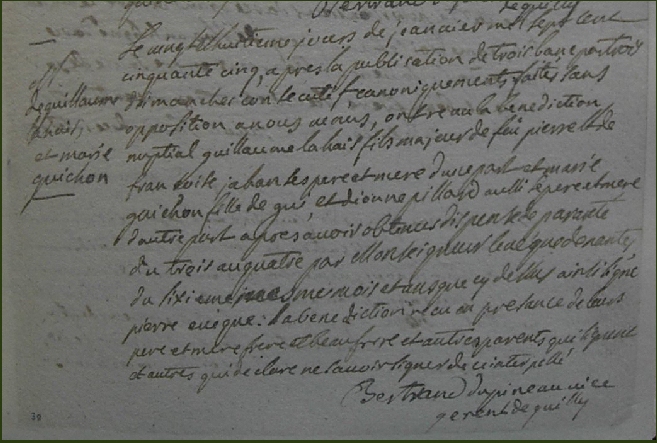 Le vingt huitieme jours de jeanvier mil sept cent
cinquante cinq, apres la publication de trois bans par trois
dimanches consecutif canoniquements faites sans
opposition a nous venus, ont reçu la benediction
nuptial guillaume lahais fils majeur de feu pierre et de
francoise jahan les pere et mere d'une part et marie
guichon fille de gui et dionne pillard aussi pere et mere
d'autre part apres avoir obtenus dispense de parante
du trois au quatre par Monseigneur leveque de nantes
du sixieme mesme mois et ans que cy dessus ainsi signé
pierre eveque: la benediction recu en presance de leurs
pere et mere frere et beaufrere et autres parents qui signent
et autres qui declare ne savoir signer de ce interpellé
Bertrand dupineau vice
gerent de quilly
de guillaume
lahais,
et marie
guichon
39